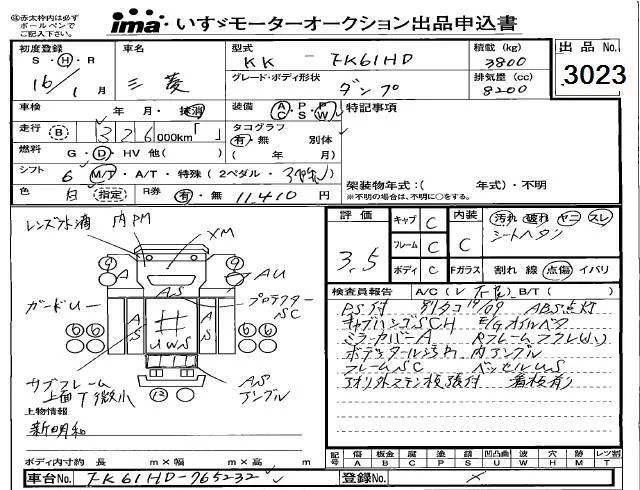 ※赤太枠内は必ず
ボールペンで
ご記入下さい。
ima いすゞモーターオークション出品申込書
出品No.
3023
初度登録 S・H・R 16/1月
車名 三菱
型式 KK - FK61HD
積載(kg) 3800
グレード・ボディ形状 ダンプ
排気量(cc) 8200
車検 年 月・抹消
装備 A・P・P C・S・W
特記事項
走行 B 326 000km「 」
タコグラフ 有・無 別体
燃料 G・D・HV 他( )
( 年 月)
シフト 6 M/T・A/T・特殊(2ペダル・
色 白 指定
R券 有・無 11,410 円
架装物年式:( 年式)・不明
※不明の場合は、不明に○をする。
評価 3.5
キャブ C
フレーム C
ボディ C
内装 C
Fガラス
汚れ 破れ ヤニ スレ
シートヘタリ
割れ 線 点傷 イバリ
検査員報告 A/C(レ不良) B/T( )
PS付 別タコ 19/09 ABS点灯
キャブハンゴSCH E/Gオイルベタ
ミラーカバーA
ボデッタール 内アングル
フレームSC ベッセルUS
アオリ外ステン板張付 看板有り
レンズ水滴
内PM
XM
A
AU
AS
プロテクター
SC
ガードU
AS
AS
UWS
サブフレーム
上面T微小
AS
アングル
12
上物情報
新明和
ボディ内寸約 長 m×幅 m×高 m
記号 傷 A 板金 B 腐 C 塗 P 錆 S 凹凸曲 U 波 W 穴 H 跡 M レツ割 T
車台No. FK61HD-765232
登録No.